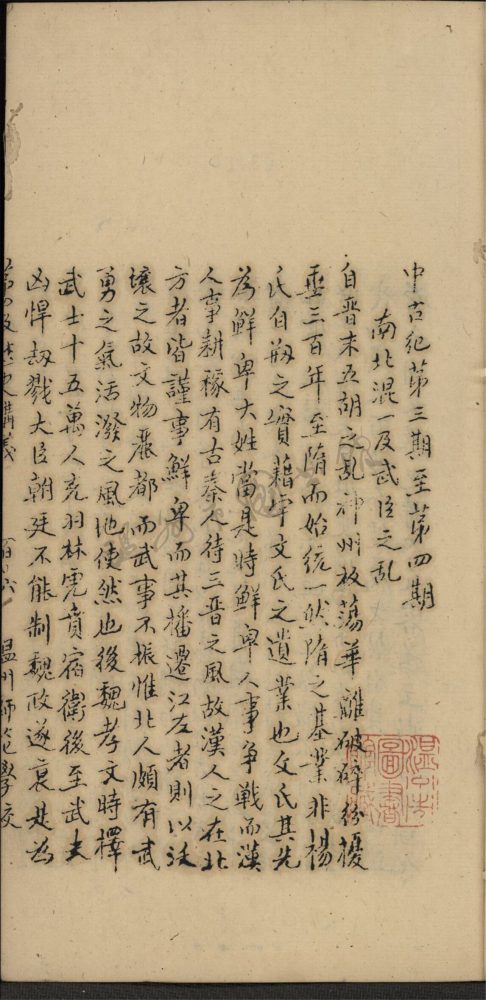 中古紀第三期至第四期
南北混一及武臣之乱
自晋末五胡之乱神州板蕩華離破碎紛擾
垂三百年至隋而始統一然隋之基業非楊
氏自刱之實藉宇文氏之遺業也文氏其先
為鮮卑大姓當是時鮮卑人事争戰而漢
人事耕稼有古秦人待三晋之風故漢人之在北
方者皆謹事鮮卑而其播遷江左者則以沃
壤之故文物麗都而武事不振惟北人頗有武
勇之氣活潑之風地使然也後魏孝文時擇
武士十五萬人充羽林虎賁宿衛後至武夫
凶悍刧戮大臣朝廷不能制魏政遂衰是為
歷史講義 温州師范學校